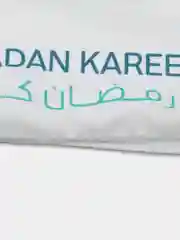 ADAN KAREE
رمضان ك